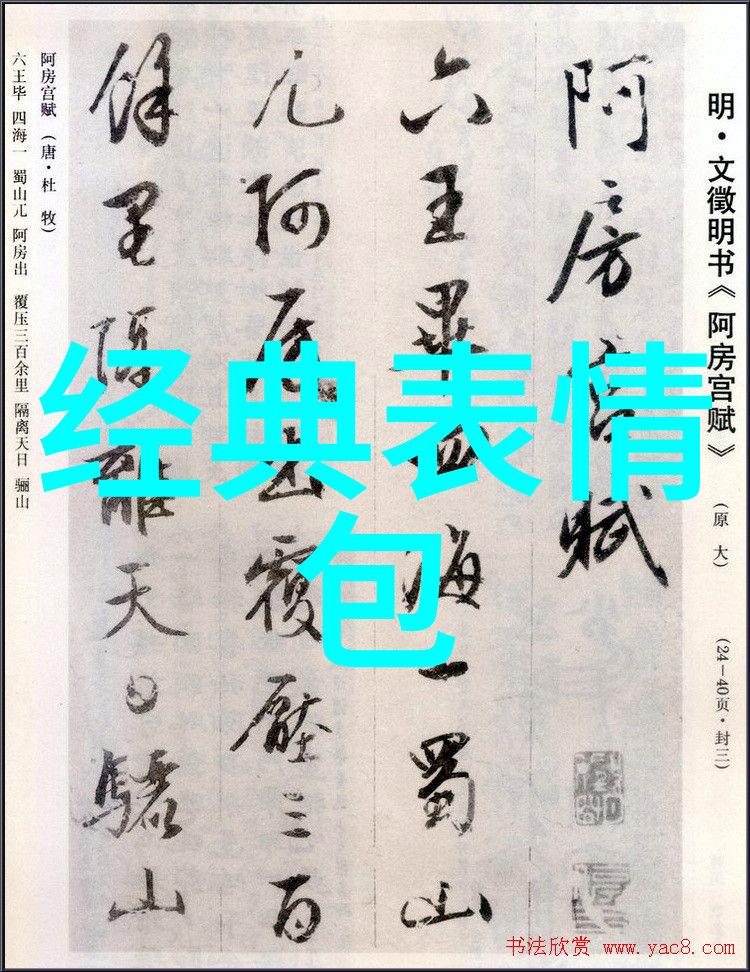 明·文徵明书《阿房宫赋》（原 大）（24—40页·封三）
阿房宮賦
六王畢四海一蜀山
兀阿房出覆壓三百
餘里隔離天日驪山
阿房宫赋（唐·杜 牧）
六王毕 四海一 蜀山兀 阿房出 覆压三百余里 隔离天日 骊山
经典表情
包
书法欣赏 www.yac8.com